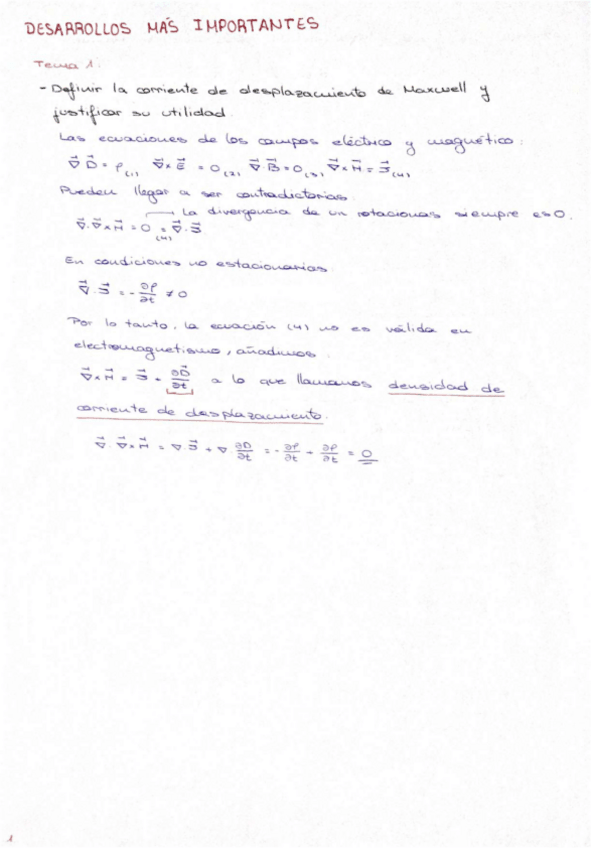 DESARROLLOS MÁS IMPORTANTES
Tema 1.
- Definir la corriente de desplazamiento de Maxwell y
justificar su utilidad.
Las ecuaciones de los campos eléctrico y magnético:
∇⃗ D⃗ = ρ (1), ∇⃗×E⃗ = 0 (2), ∇⃗·B⃗ = 0 (3), ∇⃗×H⃗ = J⃗ (4)
Pueden llegar a ser contradictorias.
→ La divergencia de un rotacional siempre es 0.
∇⃗·∇⃗×H⃗ = 0 = ∇⃗·J⃗
(4)
En condiciones no estacionarias.
∇⃗·J⃗ = - ∂ρ/∂t ≠ 0
Por lo tanto, la ecuación (4) no es válida en
electromagnetismo, añadimos.
∇⃗×H⃗ = J⃗ = ∂D⃗/∂t a lo que llamamos densidad de
corriente de desplazamiento.
∇⃗·∇⃗×H⃗ = ∇·J⃗ + ∇·∂D/∂t = - ∂ρ/∂t + ∂ρ/∂t = 0
1